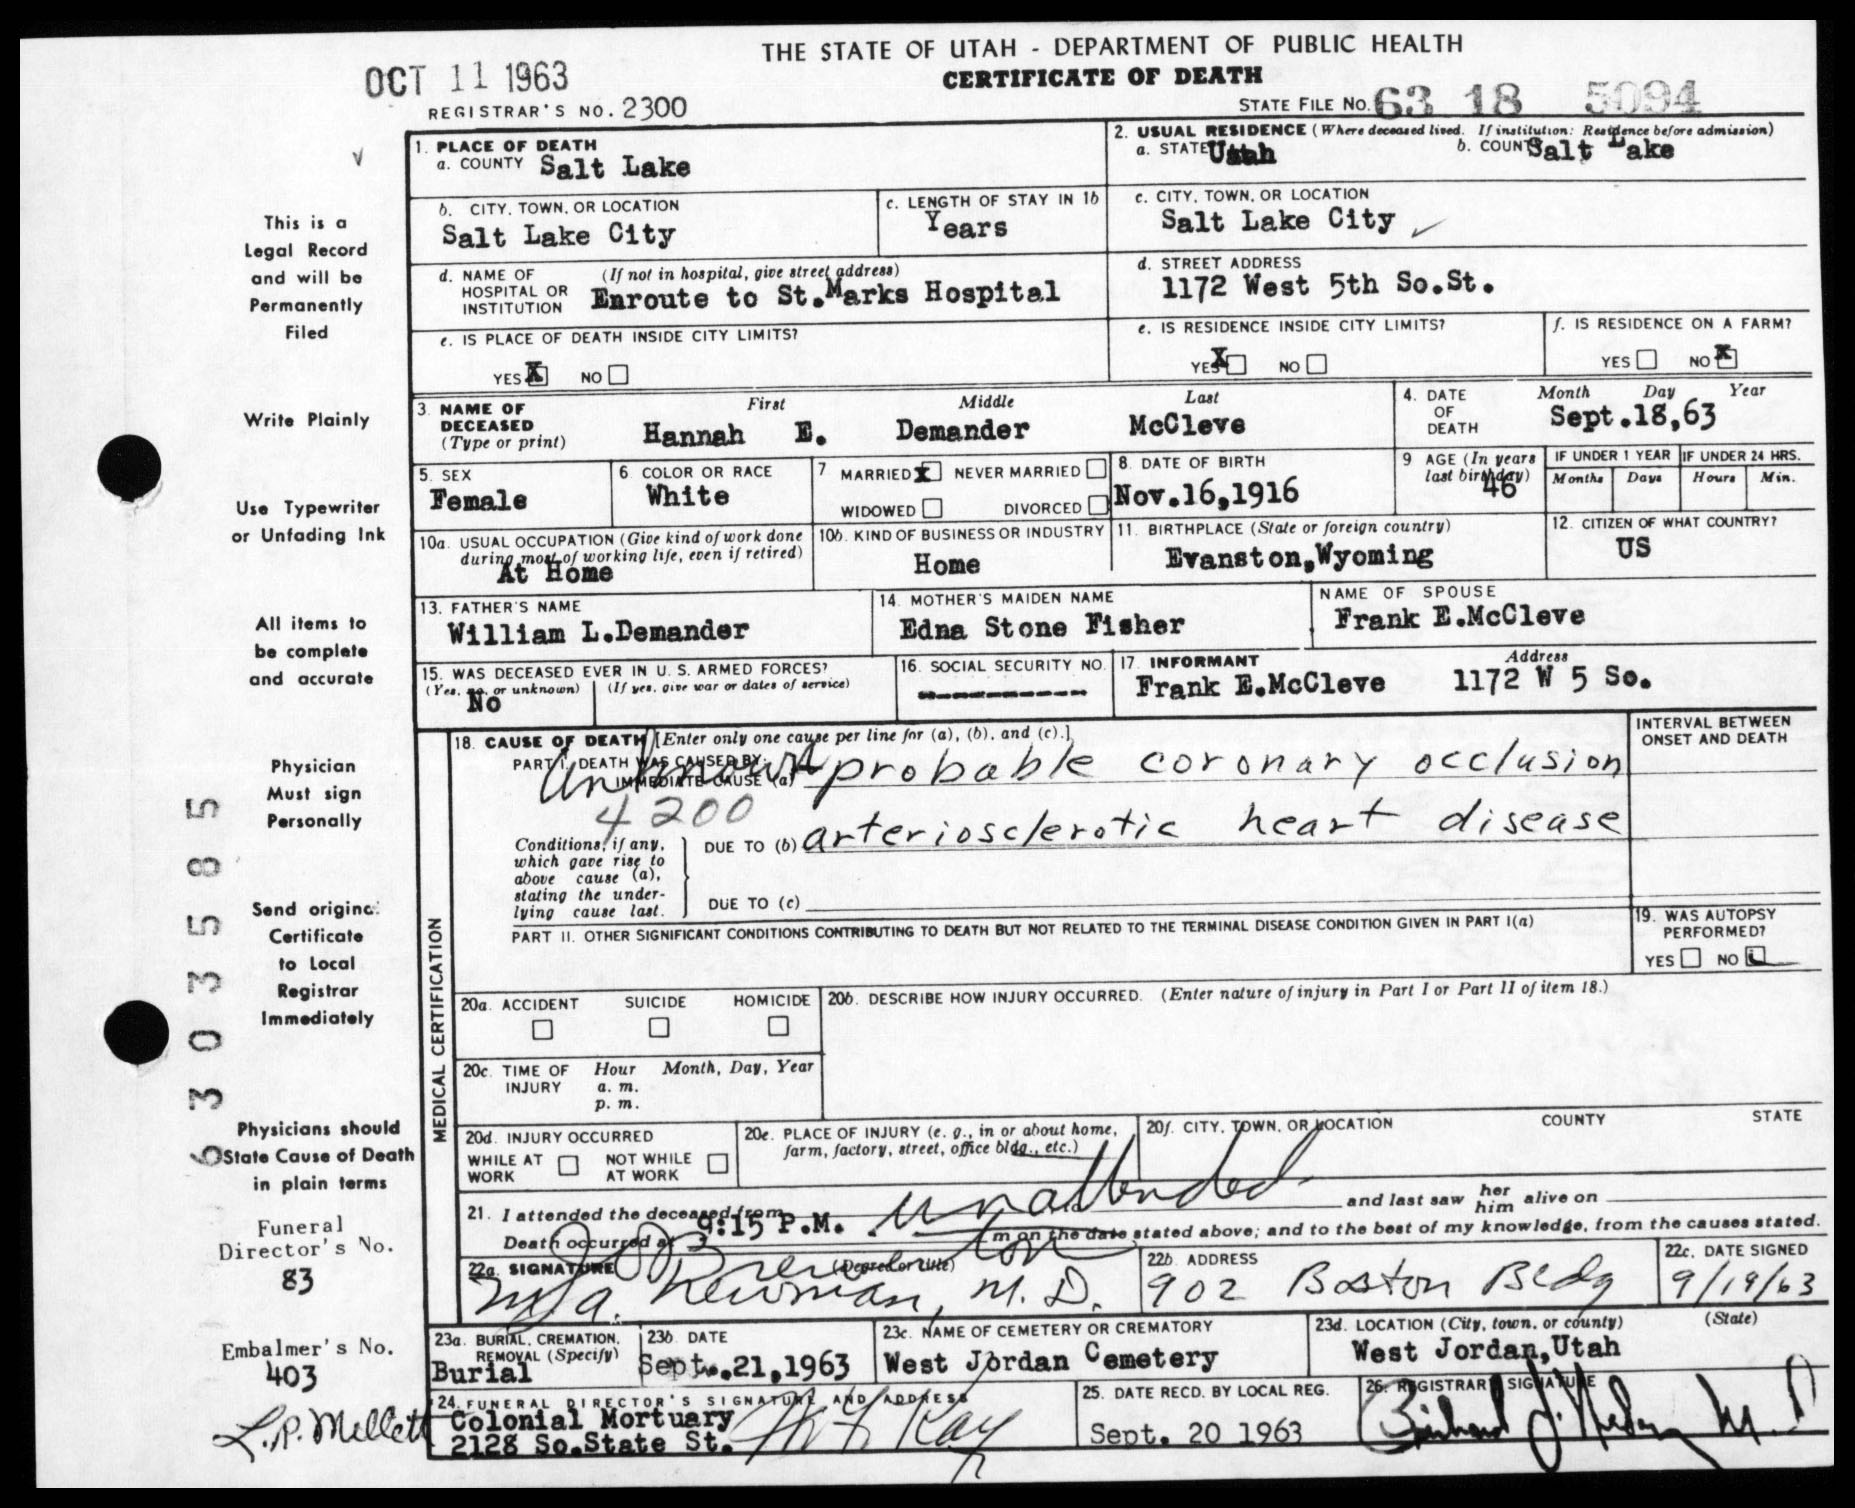 THE STATE OF UTAH - DEPARTMENT OF PUBLIC HEALTH
OCT 11 1963
CERTIFICATE OF DEATH
REGISTRAR'S NO. 2300
STATE FILE NO. 63 18 5094
1. PLACE OF DEATH
a. COUNTY Salt Lake
2. USUAL RESIDENCE (Where deceased lived. If institution: Residence before admission)
a. STATE Utah b. COUNTY Salt Lake
b. CITY, TOWN, OR LOCATION
Salt Lake City
c. LENGTH OF STAY IN 1b
Years
c. CITY, TOWN, OR LOCATION
Salt Lake City
d. NAME OF HOSPITAL OR INSTITUTION (If not in hospital, give street address)
Enroute to St.Marks Hospital
d. STREET ADDRESS
1172 West 5th So.St.
e. IS PLACE OF DEATH INSIDE CITY LIMITS?
YES X NO
e. IS RESIDENCE INSIDE CITY LIMITS?
YES X NO
f. IS RESIDENCE ON A FARM?
YES NO X
3. NAME OF DECEASED (Type or print)
First Middle Last
Hannah E. Demander McCleve
4. DATE OF DEATH Month Day Year
Sept.18,63
5. SEX
Female
6. COLOR OR RACE
White
7 MARRIED X NEVER MARRIED
WIDOWED DIVORCED
8. DATE OF BIRTH
Nov.16,1916
9 AGE (In years last birthday)
46
IF UNDER 1 YEAR
Months Days
IF UNDER 24 HRS.
Hours Min.
10a. USUAL OCCUPATION (Give kind of work done during most of working life, even if retired)
At Home
10b. KIND OF BUSINESS OR INDUSTRY
Home
11. BIRTHPLACE (State or foreign country)
Evanston,Wyoming
12. CITIZEN OF WHAT COUNTRY?
US
13. FATHER'S NAME
William L.Demander
14. MOTHER'S MAIDEN NAME
Edna Stone Fisher
NAME OF SPOUSE
Frank E.McCleve
15. WAS DECEASED EVER IN U. S. ARMED FORCES?
(Yes, no, or unknown) (If yes, give war or dates of service)
No
16. SOCIAL SECURITY NO.
17. INFORMANT Address
Frank E.McCleve 1172 W 5 So.
MEDICAL CERTIFICATION
18. CAUSE OF DEATH [Enter only one cause per line for (a), (b), and (c).]
PART I. DEATH WAS CAUSED BY:
IMMEDIATE CAUSE (a) Unknown probable coronary occlusion
4200
Conditions, if any, which gave rise to above cause (a), stating the underlying cause last.
DUE TO (b) arteriosclerotic heart disease
DUE TO (c)
INTERVAL BETWEEN ONSET AND DEATH
PART II. OTHER SIGNIFICANT CONDITIONS CONTRIBUTING TO DEATH BUT NOT RELATED TO THE TERMINAL DISEASE CONDITION GIVEN IN PART I(a)
19. WAS AUTOPSY PERFORMED?
YES NO
20a. ACCIDENT SUICIDE HOMICIDE
20b. DESCRIBE HOW INJURY OCCURRED. (Enter nature of injury in Part I or Part II of item 18.)
20c. TIME OF INJURY Hour Month, Day, Year
a. m.
p. m.
20d. INJURY OCCURRED
WHILE AT WORK NOT WHILE AT WORK
20e. PLACE OF INJURY (e. g., in or about home, farm, factory, street, office bldg., etc.)
20f. CITY, TOWN, OR LOCATION COUNTY STATE
21. I attended the deceased from unattended and last saw her him alive on
Death occurred at 9:15 P.M. m on the date stated above; and to the best of my knowledge, from the causes stated.
22a. SIGNATURE (Degree or title)
Newman, M. D.
22b. ADDRESS
902 Boston Bldg
22c. DATE SIGNED
9/19/63
23a. BURIAL, CREMATION, REMOVAL (Specify)
Burial
23b. DATE
Sept. 21,1963
23c. NAME OF CEMETERY OR CREMATORY
West Jordan Cemetery
23d. LOCATION (City, town, or county) (State)
West Jordan,Utah
24. FUNERAL DIRECTOR'S SIGNATURE AND ADDRESS
Colonial Mortuary
2128 So.State St.
25. DATE RECD. BY LOCAL REG.
Sept. 20 1963
26. REGISTRAR'S SIGNATURE
This is a
Legal Record
and will be
Permanently
Filed
Write Plainly
Use Typewriter
or Unfading Ink
All items to
be complete
and accurate
Physician
Must sign
Personally
Send original
Certificate
to Local
Registrar
Immediately
Physicians should
State Cause of Death
in plain terms
Funeral
Director's No.
83
Embalmer's No.
403
L.P. Millett
6303585